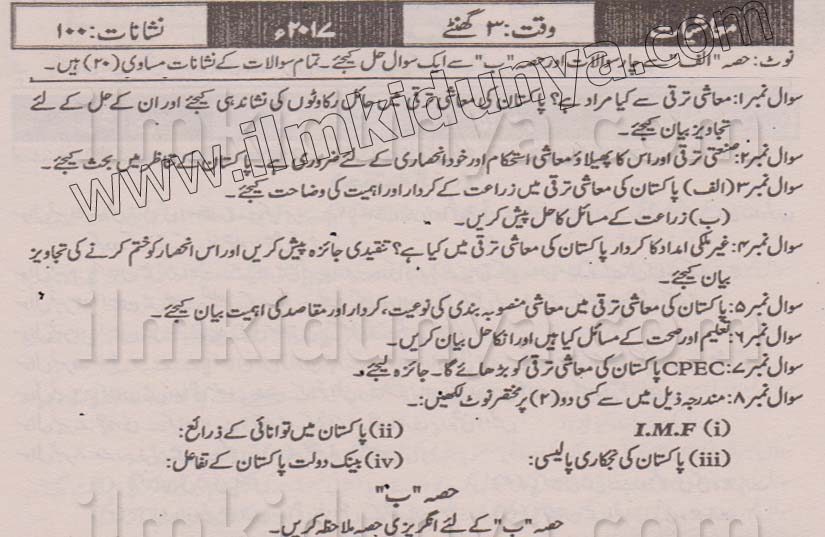 وقت: ۳ گھنٹے ۲۰۱۷ء نشانات: ۱۰۰
نوٹ: حصہ "الف" سے چار سوالات اور حصہ "ب" سے ایک سوال حل کیجئے۔ تمام سوالات کے نشانات مساوی (۲۰) ہیں۔
سوال نمبر ۱: معاشی ترقی سے کیا مراد ہے؟ پاکستان کی معاشی ترقی میں حائل رکاوٹوں کی نشاندہی کیجئے اور ان کے حل کے لئے
تجاویز بیان کیجئے۔
سوال نمبر ۲: صنعتی ترقی اور اس کا پھیلاؤ معاشی استحکام اور خود انحصاری کے لئے ضروری ہے۔ پاکستان کے تناظر میں بحث کیجئے۔
سوال نمبر ۳ (الف) پاکستان کی معاشی ترقی میں زراعت کے کردار اور اہمیت کی وضاحت کیجئے۔
(ب) زراعت کے مسائل کا حل پیش کریں۔
سوال نمبر ۴: غیر ملکی امداد کا کردار پاکستان کی معاشی ترقی میں کیا ہے؟ تنقیدی جائزہ پیش کریں اور اس انحصار کو ختم کرنے کی تجاویز
بیان کیجئے۔
سوال نمبر ۵: پاکستان کی معاشی ترقی میں معاشی منصوبہ بندی کی نوعیت، کردار اور مقاصد کی اہمیت بیان کیجئے۔
سوال نمبر ۶: تعلیم اور صحت کے مسائل کیا ہیں اور انکا حل بیان کریں۔
سوال نمبر ۷: CPEC پاکستان کی معاشی ترقی کو بڑھائے گا۔ جائزہ لیجئے۔
سوال نمبر ۸: مندرجہ ذیل میں سے کسی دو (۲) پر مختصر نوٹ لکھیں:۔
(i) I.M.F (ii) پاکستان میں توانائی کے ذرائع:
(iii) پاکستان کی نجکاری پالیسی: (iv) بینک دولت پاکستان کے تفاعل:
حصہ "ب"
حصہ "ب" کے لئے انگریزی حصہ ملاحظہ کریں۔
www.ilmkidunya.com
ilmkidunya.com
ilmkidunya.com
ilmkidunya.com